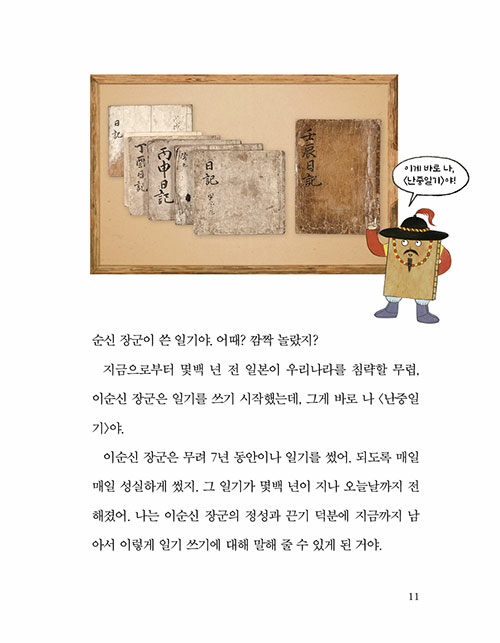 日記
丁酉日記
丙申日記
日記
壬辰日記
이게 바로 나,
〈난중일기〉야!
순신 장군이 쓴 일기야. 어때? 깜짝 놀랐지?
지금으로부터 몇백 년 전 일본이 우리나라를 침략할 무렵,
이순신 장군은 일기를 쓰기 시작했는데, 그게 바로 나 〈난중일
기〉야.
이순신 장군은 무려 7년 동안이나 일기를 썼어. 되도록 매일
매일 성실하게 썼지. 그 일기가 몇백 년이 지나 오늘날까지 전
해졌어. 나는 이순신 장군의 정성과 끈기 덕분에 지금까지 남
아서 이렇게 일기 쓰기에 대해 말해 줄 수 있게 된 거야.
11